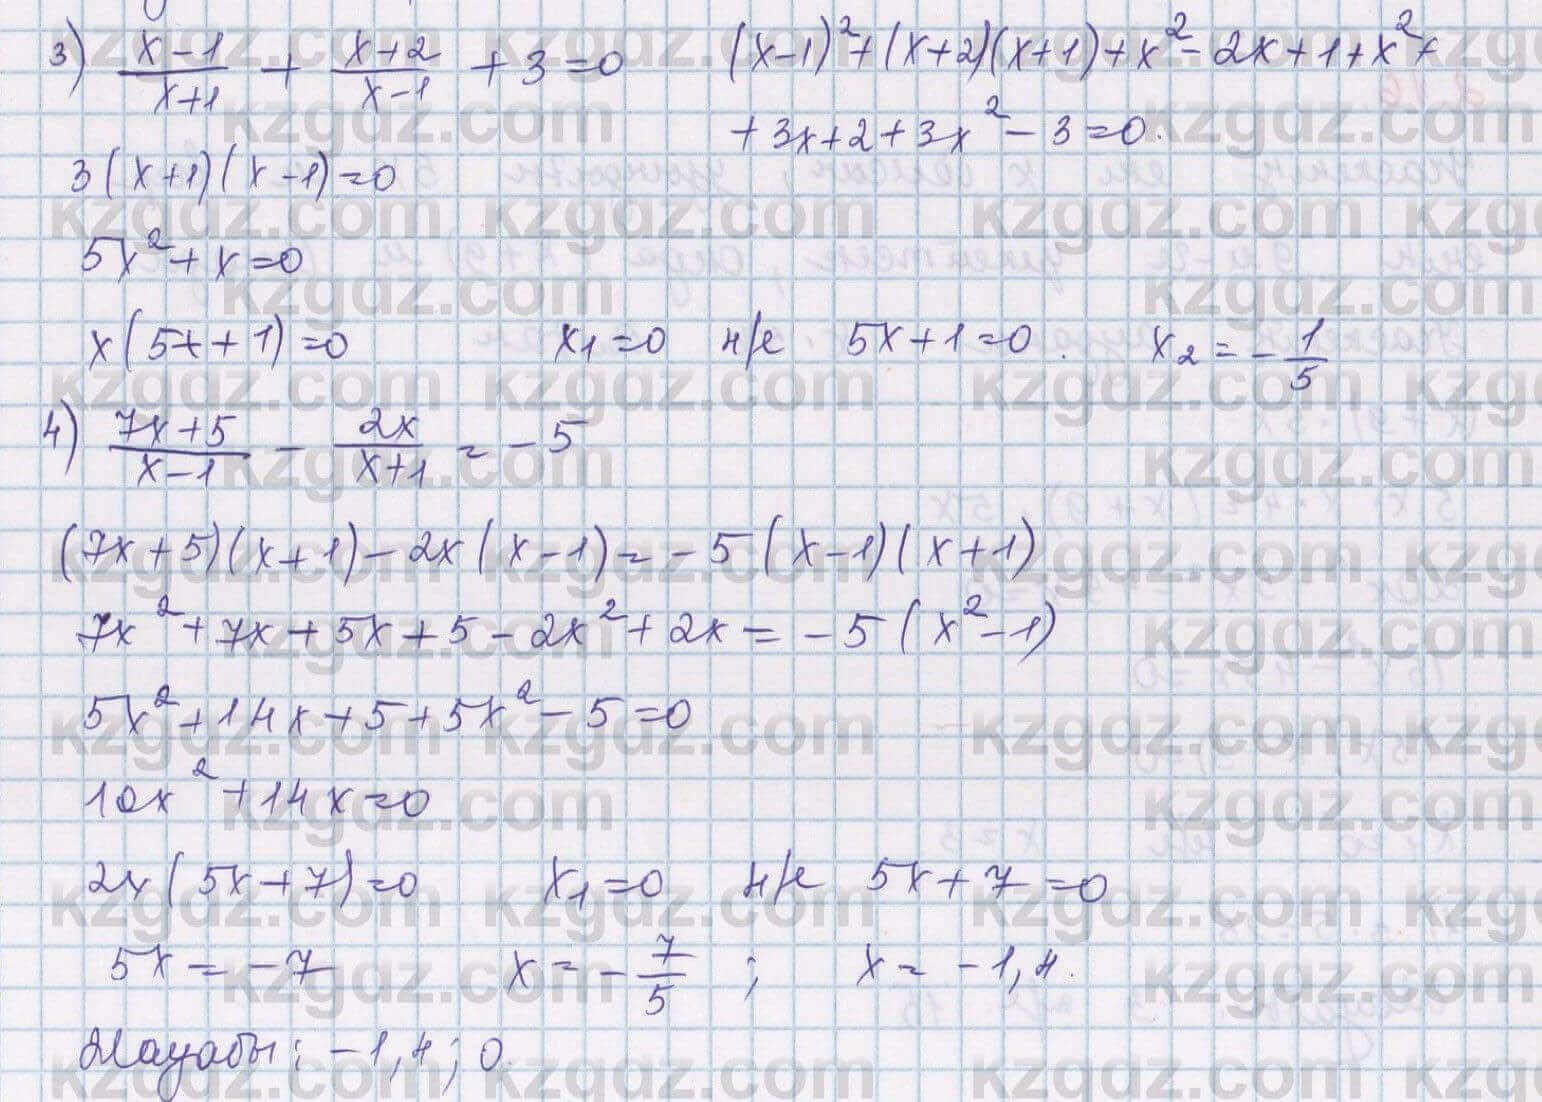 3) (x-1)/(x+1) + (x+2)/(x-1) + 3 = 0
(x-1)² + (x+2)(x+1) + x² - 2x + 1 + x² +
+ 3x + 2 + 3x² - 3 = 0.
3(x+1)(x-1) = 0
5x² + x = 0
x(5x+1) = 0 x₁ = 0 н/е 5x+1 = 0. x₂ = -1/5
4) (7x+5)/(x-1) - 2x/(x+1) = -5
(7x+5)(x+1) - 2x(x-1) = -5(x-1)(x+1)
7x² + 7x + 5x + 5 - 2x² + 2x = -5(x²-1)
5x² + 14x + 5 + 5x² - 5 = 0
10x² + 14x = 0
2x(5x+7) = 0 x₁ = 0 н/е 5x+7 = 0
5x = -7 x = -7/5 ; x = -1,4.
Жауабы: -1,4; 0.
kzgdz.com